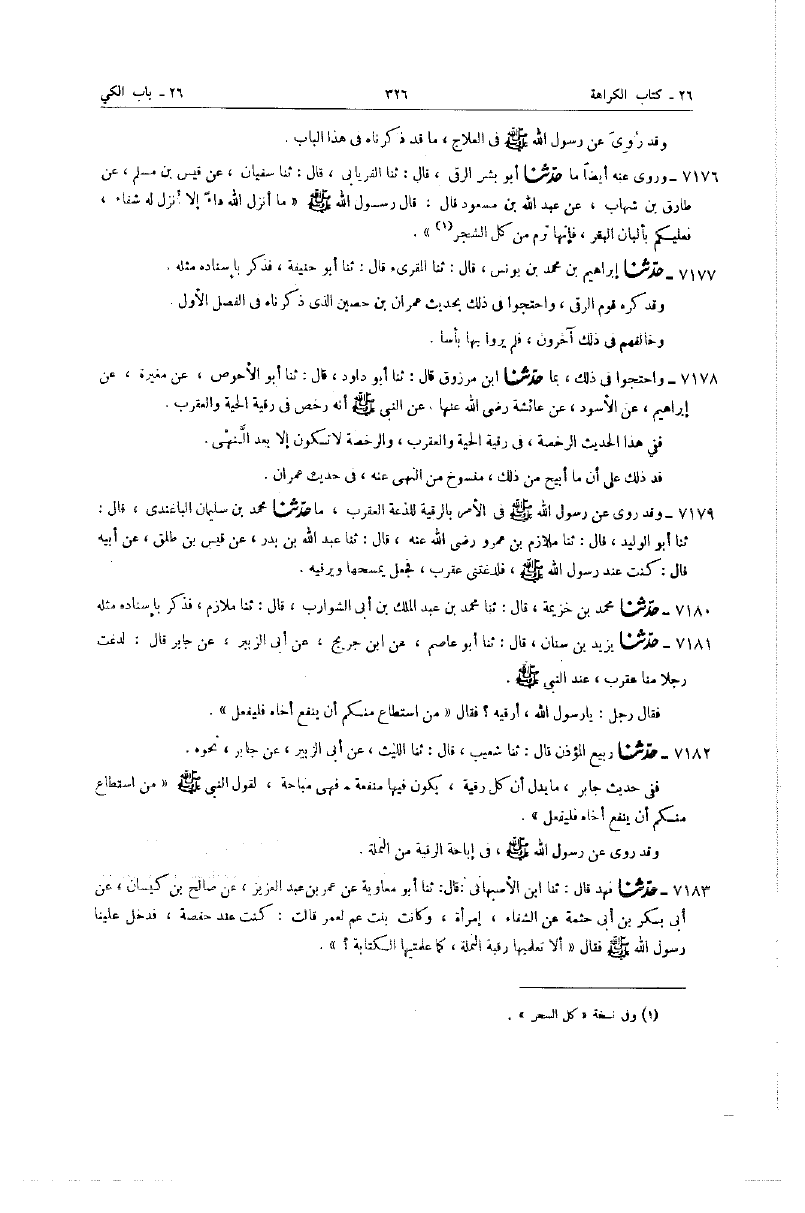 ٢٦ - كتاب الكراهة ٣٢٦ ٢٦ - باب الكي
وقد رُوِيَ عن رسول الله ﷺ فى العلاج ، ما قد ذكرناه فى هذا الباب .
٧١٧٦ - وروى عنه أيضاً ما حدّثنا أبو بشر الرقى ، قال : ثنا الفريابى ، قال : ثنا سفيان ، عن قيس بن مسلم ، عن
طارق بن شهاب ، عن عبد الله بن مسعود قال : قال رسول الله ﷺ « ما أنزل الله داءً إلا أنزل له شفاء ،
فعليكم بألبان البقر ، فإنها ترم من كل الشجر(١) » .
٧١٧٧ - حدّثنا إبراهيم بن محمد بن يونس ، قال : ثنا المقرىء قال : ثنا أبو حنيفة ، فذكر بإسناده مثله .
وقد كره قوم الرقى ، واحتجوا فى ذلك بحديث عمران بن حصين الذى ذكرناه فى الفصل الأول .
وخالفهم فى ذلك آخرون ، فلم يروا بها بأسا .
٧١٧٨ - واحتجوا فى ذلك ، بما حدّثنا ابن مرزوق قال : ثنا أبو داود ، قال : ثنا أبو الأحوص ، عن مغيرة ، عن
إبراهيم ، عن الأسود ، عن عائشة رضى الله عنها . عن النبى ﷺ أنه رخص فى رقية الحية والعقرب .
ففى هذا الحديث الرخصة ، فى رقية الحية والعقرب ، والرخصة لا تكون إلا بعد النَّهْى .
قد ذلك على أن ما أبيح من ذلك ، منسوخ من النهى عنه ، فى حديث عمران .
٧١٧٩ - وقد روى عن رسول الله ﷺ فى الأمر بالرقية للذعة العقرب ، ما حدّثنا محمد بن سليمان الباغندى ، قال :
ثنا أبو الوليد ، قال : ثنا ملازم بن عمرو رضى الله عنه ، قال : ثنا عبد الله بن بدر ، عن قيس بن طلق ، عن أبيه
قال : كنت عند رسول الله ﷺ ، فلدغتنى عقرب ، فجعل يمسحها ويرقيه .
٧١٨٠ - حدّثنا محمد بن خزيمة ، قال : ثنا محمد بن عبد الملك بن أبى الشوارب ، قال : ثنا ملازم ، فذكر بإسناده مثله
٧١٨١ - حدّثنا يزيد بن سنان ، قال : ثنا أبو عاصم ، عن ابن جريج ، عن أبى الزبير ، عن جابر قال : لدغت
رجلا منا عقرب ، عند النبى ﷺ .
فقال رجل : يارسول الله ، أرقيه ؟ فقال « من استطاع منكم أن ينفع أخاه فليفعل » .
٧١٨٢ - حدّثنا ربيع المؤذن قال : ثنا شعيب ، قال : ثنا الليث ، عن أبى الزبير ، عن جابر ، نحوه .
ففى حديث جابر ، ما يدل أن كل رقية ، يكون فيها منفعة ، فهى مباحة ، لقول النبى ﷺ « من استطاع
منكم أن ينفع أخاه فليفعل » .
وقد روى عن رسول الله ﷺ ، فى إباحة الرقية من النملة .
٧١٨٣ - حدّثنا فهد قال : ثنا ابن الأصبهانى قال : ثنا أبو معاوية عن عمر بن عبد العزيز ، عن صالح بن كيسان ، عن
أبى بكر بن أبى حثمة عن الشفاء ، إمرأة ، وكانت بنت عم لعمر قالت : كنت عند حفصة ، فدخل علينا
رسول الله ﷺ فقال « ألا تعلميها رقية النملة ، كما علمتيها الكتابة ؟ » .
(١) وفى نسخة « كل السحر » .